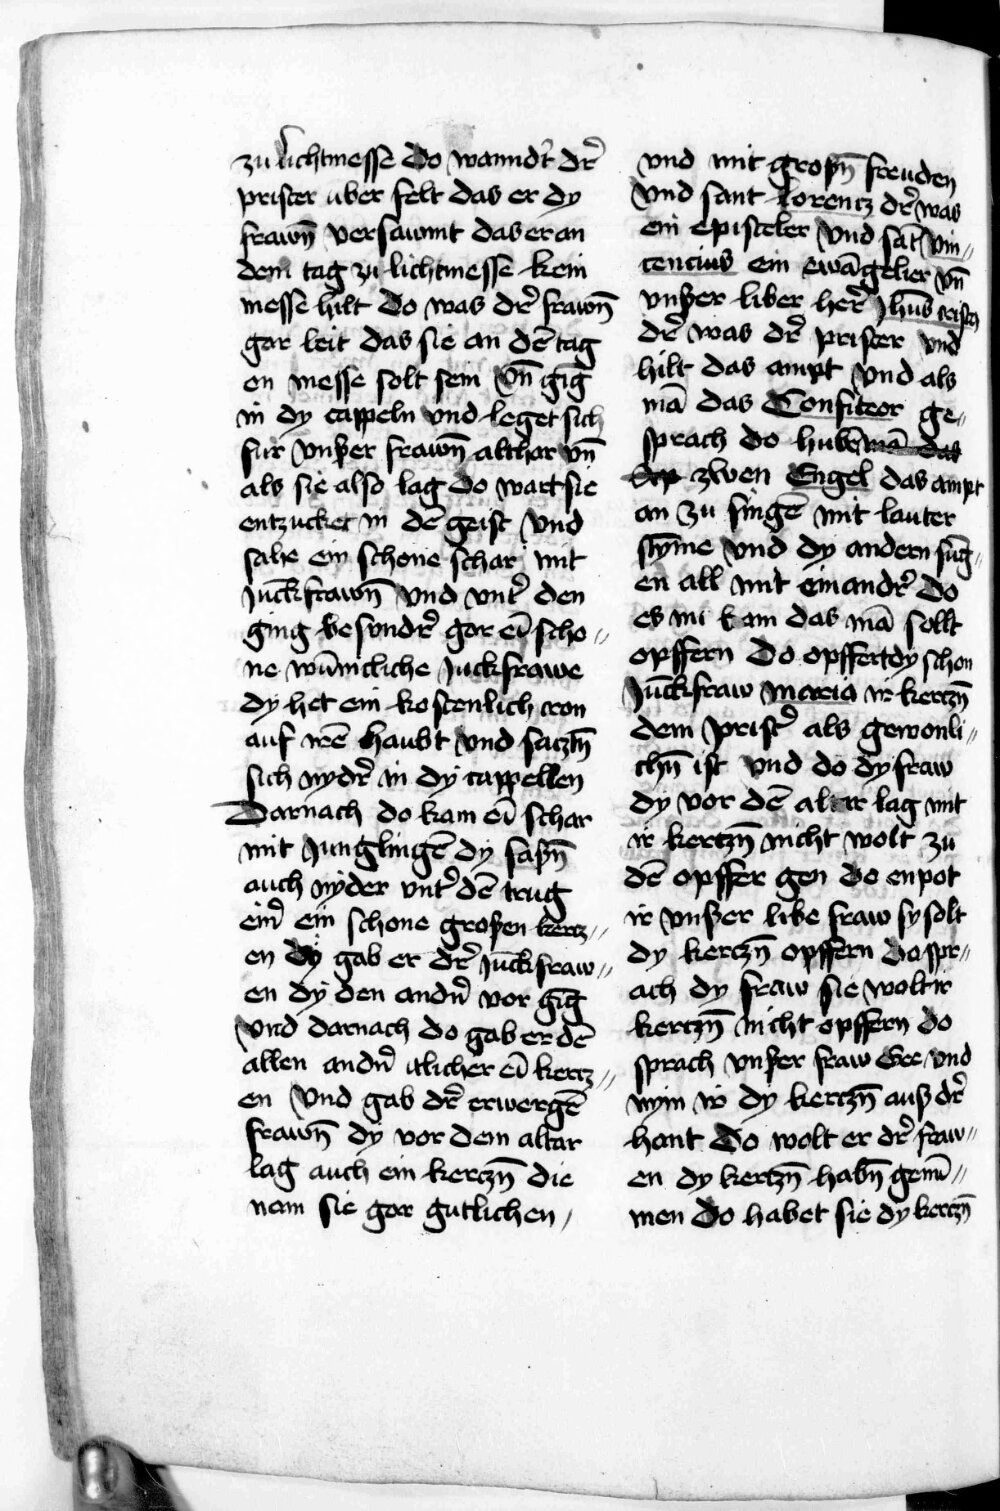 zu lichtmesse do wanndt̉ dr̉
prister vber felt das er dy
frawn̄ versawmt das er an
dem tag zu lichtmesse kein
messe hilt do was dr̉ frawn̄
gar leit das sie an dē tag
on messe solt sein vn̄ gīg
in dy cappeln vnd leget sich
fur vnßer frawn̄ althar vn̄
als sie also lag do wart sie
entzucket in dē geist vnd
sahe ein schone schar mit
Juckfrawn̄ vnd vnt̉ den
ging besundr̉ gar eī scho〃
ne wūnicliche Juckfrawe
dy het ein kostenlich cron
auf irē haubt vnd saczt̄n
sich nydr̉ in dy cappellen
Darnach do kam eī schar
mit Junglingē dy saßn̄
auch nyder vnt̉ dē trug
ein̉ ein schone großen kercz〃
en dy gab er dr̉ Juckfraw〃
en dy den andn̉ vor gīg
vnd darnach do gab er dē
allen andn̉ itlicher eī kercz〃
en vnd gab dr̉ erwergē
frawn̄ dy vor dem altar
lag auch ein kerczn̄ die
nam sie gar gutlichen
vnd mit großn̄ freuden
vnd sant Lorencz dr̉ was
ein episteler vnd sāt vin〃
cencius ein ewāgelier vn̄
vnßer liber her̉ Jhus cristus
dr̉ was dr̉ prister vnd
hilt das ampt vnd als
mā das Confiteor ge〃
sprach do hubē mā das
zwen Engel das ampt
an zu singē mit lauter
stȳme vnd dy andern sūg〃
en all mit einandr̉ do
es nu kam das mā sollt
opffern do opffert dy schon
Jūckfraw maria ir kerczn̄
dem prist̉ als gewonli〃
chn̄ ist vnd do dy fraw
dy vor dē altar lag mit
ir kerczn̄ nicht wolt zu
dē opffer gen do enpot
ir vnßer libe fraw sy solt
dy kerczn̄ opffern do spr〃
ach dy fraw sie wolt ir
kerczn̄ nicht opffern do
sprach vnßer fraw Gee vnd
nym ir dy kerczn̄ auß dr̉
hant Do wolt er dr̉ fraw〃
en dy kerczn̄ habn̄ genū〃
men do habet sie dy kerczn̄